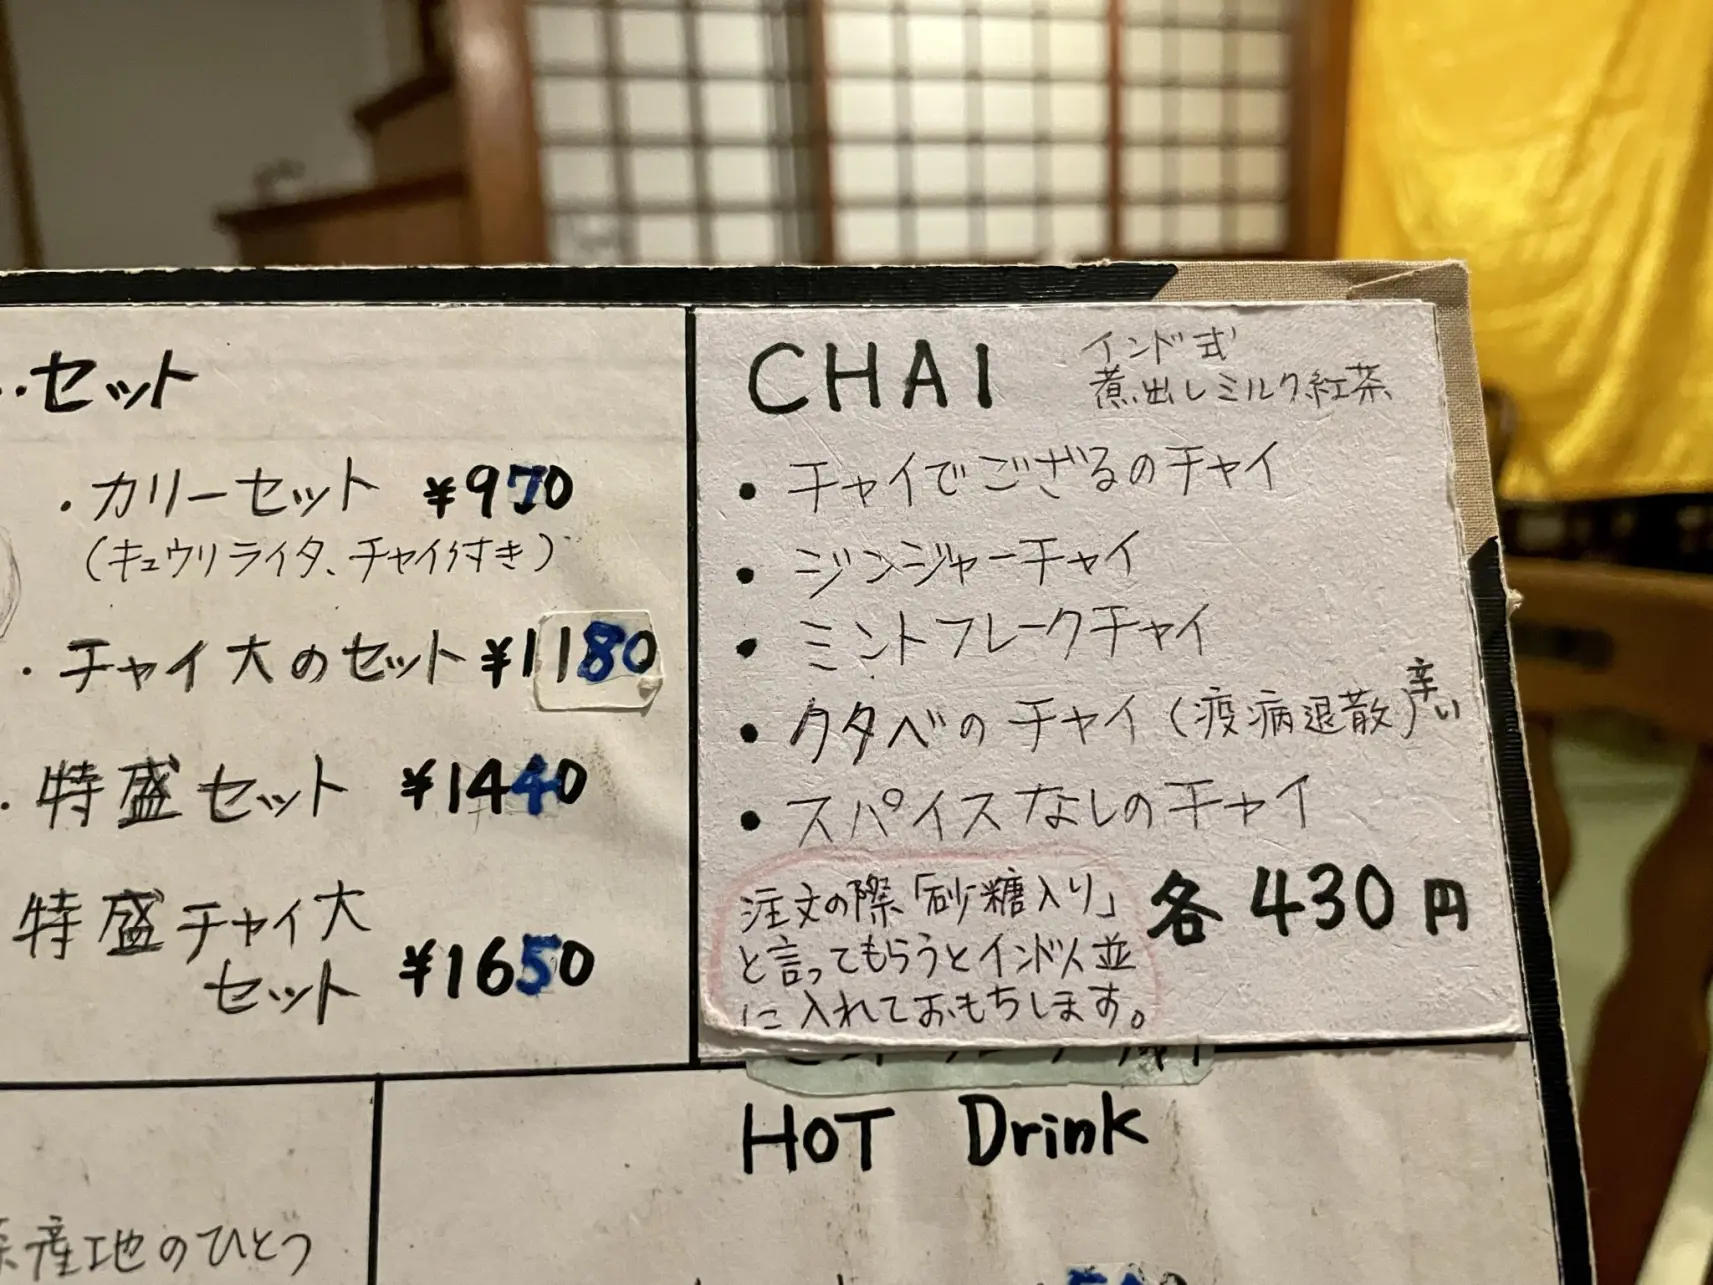 セット
・カリーセット ¥970
(キュウリライタ、チャイ付き)
・チャイ大のセット ¥1180
・特盛セット ¥1440
特盛チャイ大
セット ¥1650
産地のひとつ
CHAI
インド式
煮出しミルク紅茶
• チャイでござるのチャイ
• ジンジャーチャイ
• ミントフレークチャイ
• クタベのチャイ(疫病退散)辛い
• スパイスなしのチャイ
各430円
注文の際「砂糖入り」
と言ってもらうとインド人並
に入れておもちします。
HOT Drink